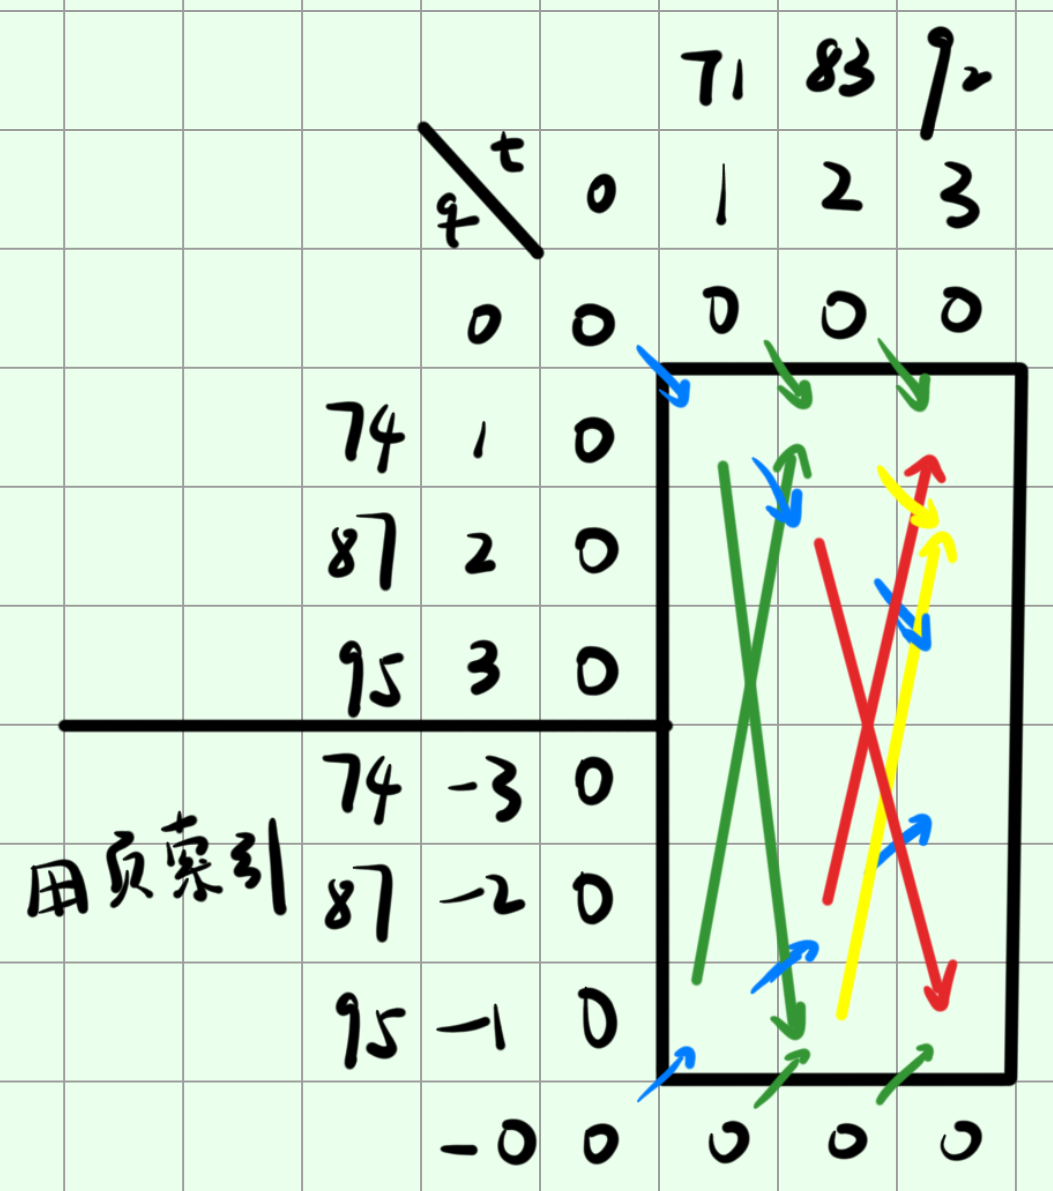 71 83 92
t 0 1 2 3
q
0 0 0 0 0
74 1 0
87 2 0
95 3 0
74 -3 0
用页索引 87 -2 0
95 -1 0
-0 0 0 0 0